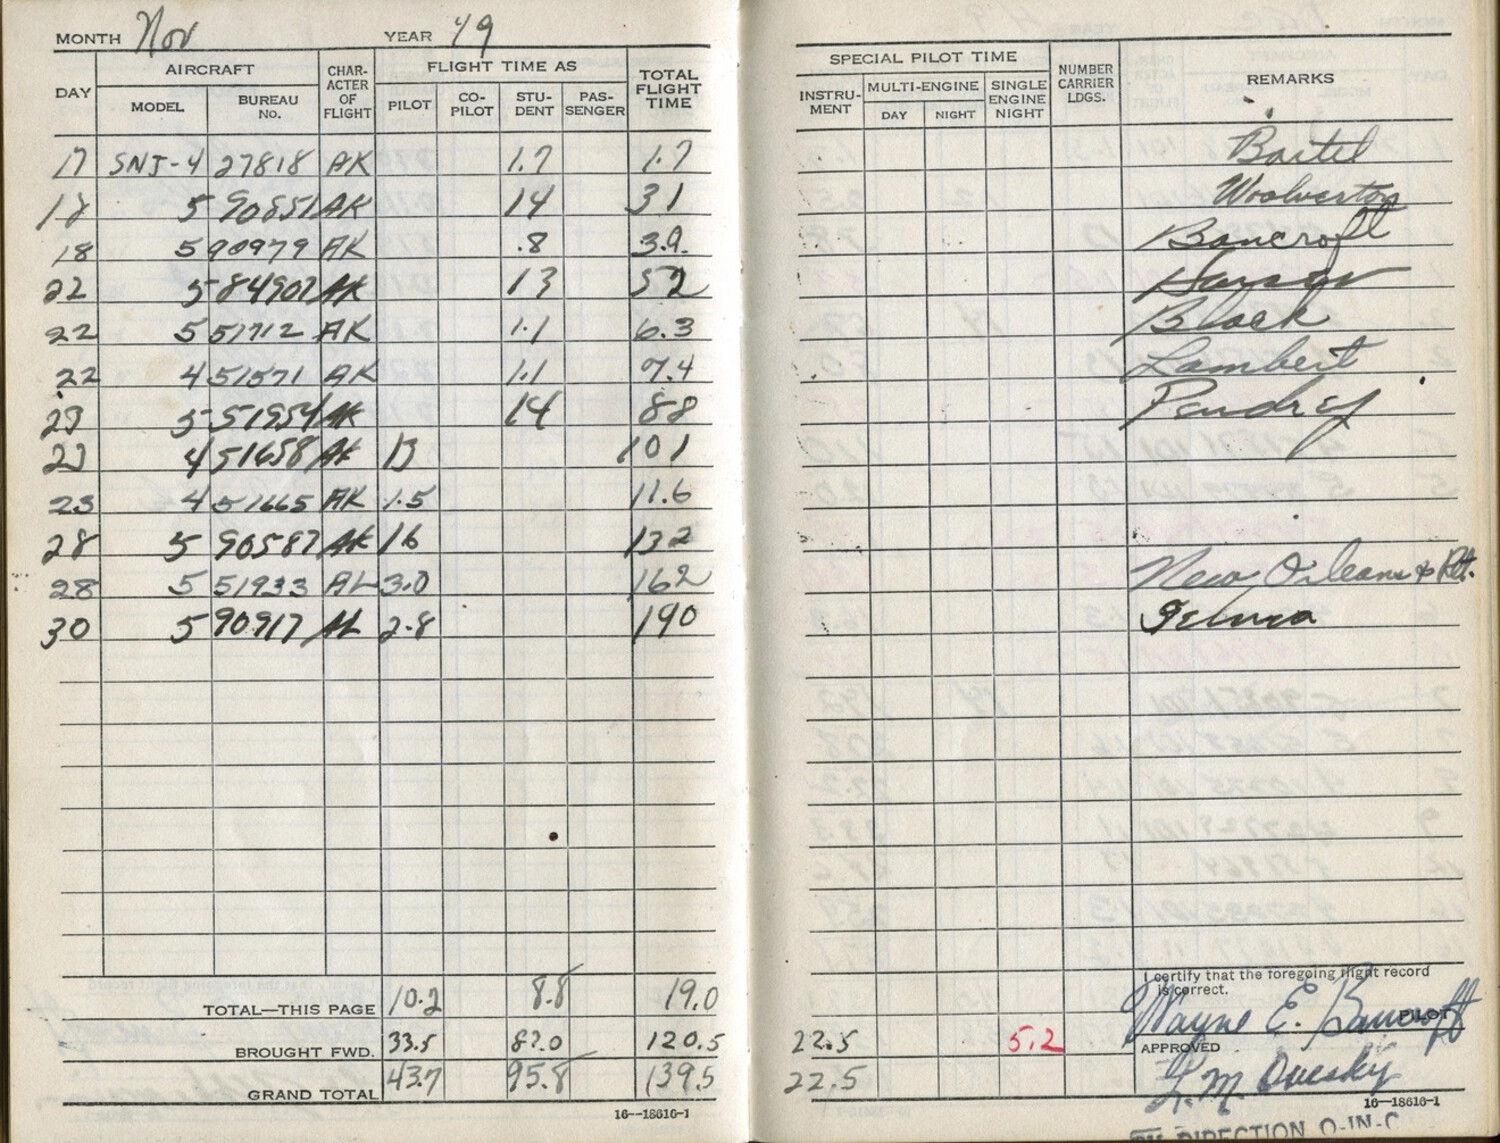 MONTH Nov YEAR 49
DAY AIRCRAFT MODEL BUREAU No. CHARACTER OF FLIGHT FLIGHT TIME AS PILOT CO-PILOT STUDENT PASSENGER TOTAL FLIGHT TIME
SPECIAL PILOT TIME INSTRUMENT MULTI-ENGINE DAY NIGHT SINGLE ENGINE NIGHT NUMBER CARRIER LDGS. REMARKS
17 SNJ-4 27818 AK 1.7 1.7 Bartel
18 5 90851 AK 14 31 Woolverton
18 5 90979 AK .8 3.9 Bancroft
22 5 84907 AK 13 52
22 5 51712 AK 1.1 6.3 Block
22 4 51571 AK 1.1 7.4 Lambert
23 5 51954 AK 14 88 Pendry
23 4 51658 AK 13 101
23 4 51665 AK 1.5 11.6
28 5 90587 AK 16 132
28 5 51933 AL 3.0 162 New Orleans & Ret.
30 5 90917 AL 2.8 190
TOTAL—THIS PAGE 10.2 8.8 19.0
BROUGHT FWD. 33.5 87.0 120.5 22.5 5.2
GRAND TOTAL 43.7 95.8 139.5 22.5
16—18616-1
I certify that the foregoing flight record
is correct.
Wayne E. Bancroft PILOT
APPROVED
16—18616-1
BY DIRECTION O-IN-C